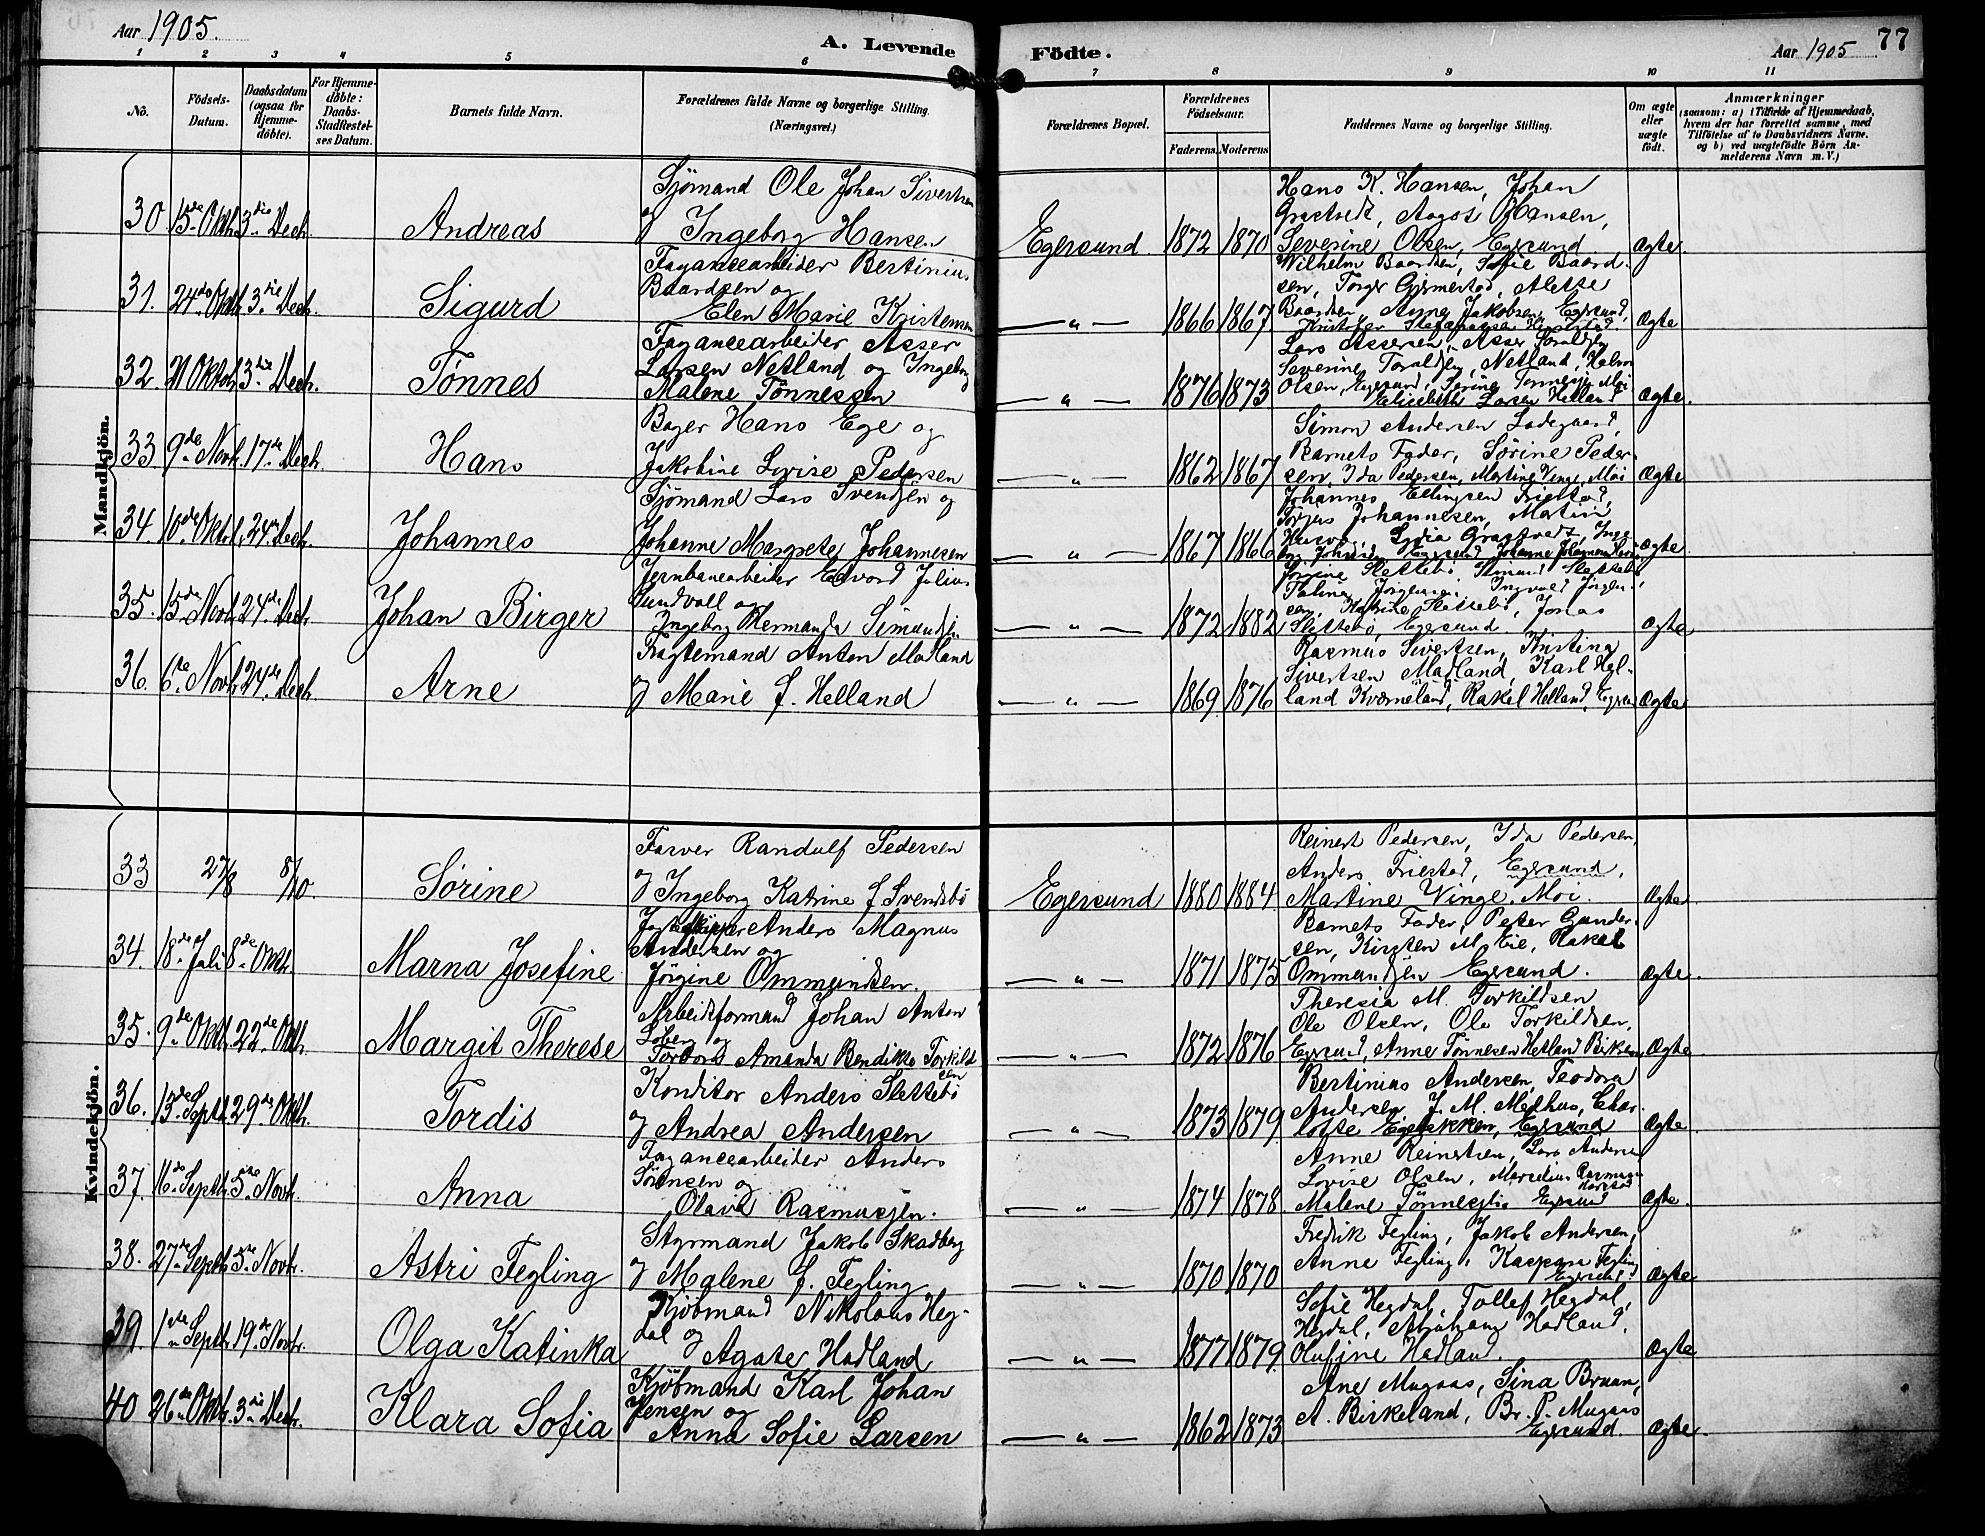 Aar 1905.
A. Levende Födte.
Aar 1905
77
1 2 3 4 5 6 7 8 9 10 11
No.
Födsels-
Datum.
Daabsdatum
(ogsaa for
Hjemme-
döbte).
For Hjemme-
döbte:
Daabs-
Stadfestel-
ses Datum.
Barnets fulde Navn.
Forældrenes fulde Navne og borgerlige Stilling.
(Næringsvei.)
Forældrenes Bopæl.
Forældrenes
Födselsaar.
Faderens. Moderens.
Faddernes Navne og borgerlige Stilling.
Om ægte
eller
uægte
födt.
Anmærkninger
(saasom: a) i Tilfælde af Hjemmedaab,
hvem der har forrettet samme, med
Tilföielse af to Daabsvidners Navne.
og b) ved uægtefödte Börn An-
melderens Navn m. V.)
Mandkjön.
30 15de Oktb. 3die Decb. Andreas
Sjömand Ole Johan Sivertsen
og Ingeborg Hansen
Egersund. 1872 1870
Hans K. Hansen, Johan
Hansen,
Severine Olsen, Egersund.
Ægte.
31. 24de Oktb. 3die Decb. Sigurd
Fayancearbeider Bertinius
Baardsen og
Elen Marie Kristensen
— " — 1866 1867
Wilhelm Baardsen, Sofie Baard-
sen, Torger Gjermestad, Mette
Baardsen, Anne Jakobsen, Egersund,
Kristofer
Ægte
32. 21 Oktob. 3die Decb. Tönnes
Fayancearbeider Asser
Larsen Netland og Ingeborg
Malene Tönnessen
— " — 1876 1873
Lars Assersen, Asser
Severine Netland,
Olsen, Egersund, Serine Tönnesen Moi
Elisabeth Larsen Hetland
Ægte.
33 9de Novb. 17de Decb. Hans
Bager Hans Ege og
Jakobine Lovise Pedersen
— " — 1862 1867
Simon Andersen Ladegaard,
Barnets Fader, Sörine Peder-
sen, Ida Pedersen, Martine Vinge, Moi
Ægte
34. 10de Oktob. 24de Decb. Johannes
Sjömand Lars Svendsen og
Johanne Margrete Johannesen
— " — 1867 1866
Johannes Ellingsen Friestad,
Torjus Johannesen, Martin
Lydia
Egersund
Ægte
35. 15de Novb. 24de Decb. Johan Birger
Jernbanearbeider Edvard Julius
Sundvall og
Ingeborg Hermanda Simonsen
— " — 1872 1882
Slettebö
Paline Jörgensen, Ingvald Jörgen-
sen, Katrine Slettebö, Jonas
Slettebö, Egersund.
Ægte
36. 6te Novb. 24de Decb. Arne
Fragtemand Anton Madland
og Marie f. Helland
— " — 1869 1876
Rasmus Sivertsen, Kristina
Sivertsen Madland, Karl Hel-
land Kverneland, Rakel Helland, Egersund
Ægte
Kvindekjön.
33 27/8 8/10. Sörine
Farver Randulf Pedersen
og Ingeborg Katrine f. Svendsbö
Egersund 1880 1884
Reinert Pedersen, Ida Pedersen,
Anders Friestad, Egersund,
Martine Vinge. Moi.
Ægte
34. 18de Juli 8de Oktb. Marna Josefine
Anders Magnus
Andersen og
Jörgine Ommundsen.
— " — 1871 1875
Barnets Fader, Peter Gunder-
sen, Kirsten M. Eie, Rakel
Ommundsen Egersund.
Ægte.
35. 9de Oktb. 22de Oktb. Margit Therese
Arbeidsformand Johan Anton
og
Amanda Bendikke Torkild-
sen
— " — 1872 1876
Theresia M. Torkildsen
Ole Olsen, Ole Torkildsen,
Egersund, Anne Tönnesen Hetland
Ægte
36. 15de Septb. 29de Oktb. Tordis
Konditor Anders Slettebö
og Andrea Andersen
— " — 1873 1879
Bertinius Andersen, Teodora
Andersen, J. M. Melhus, Char-
lotte Egebakken, Egersund
Ægte
37. 16de Septb. 5te Novb. Anna
Fayancearbeider Anders
Sörensen og
Olava Rasmussen.
— " — 1874 1878
Anne Reinertsen, Lars Andersen
Lovise Olsen, Marselius Rasmussen
Malene Egersund
Ægte.
38. 27de Septb. 5te Novb. Astri Fegling
Styrmand Jakob Skadberg
og Malene f. Fegling
— " — 1870 1870
Fredrik Fegling, Jakob Andersen,
Anne Fegling, Kaspara Fegling
Egersund
Ægte
39. 1ste Septb. 19de Novb. Olga Katinka
Kjöbmand Nikolaus Heg-
dal og
Agate Hadland
— " — 1877 1879
Sofie Hegdal, Tollef Hegdal,
Hegdal, Abraham Hadland,
Olufine Hadland.
Ægte
40 26de Oktb. 3die Decb. Klara Sofia
Kjöbmand Karl Johan
Jensen og
Anna Sofie Larsen
— " — 1862 1873
Ane Mugaas, Sina Bruun,
A. Birkeland, Br. P. Mugaas
Egersund.
Ægte.